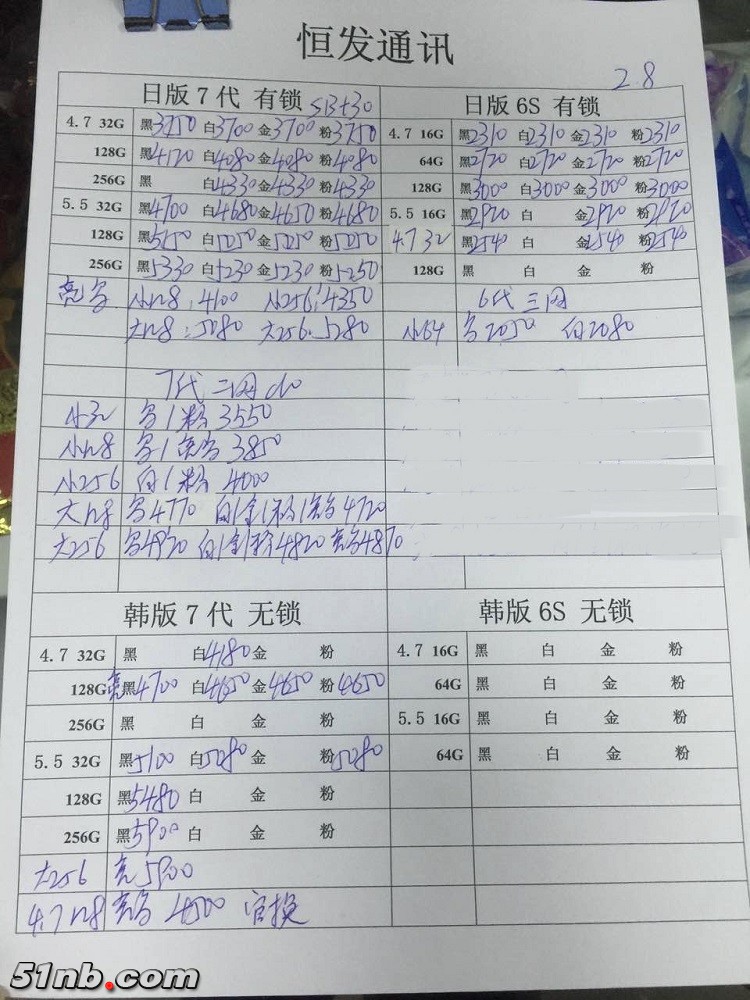 恒发通讯
2.8
日版7代 有锁
日版6S 有锁
4.7 32G 黑3750 白3700 金3700 粉3750
4.7 16G 黑2310 白2310 金2310 粉2310
128G 黑4120 白4080 金4080 粉4080
64G 黑2720 白2720 金2720 粉2720
256G 黑 白4330 金4330 粉4330
128G 黑3000 白3000 金3000 粉3000
5.5 32G 黑4700 白4680 金4650 粉4680
5.5 16G 黑2920 白 金2920 粉2920
128G 黑5150 白5050 金5050 粉5050
4.7 32 黑2540 白 金2540 粉2540
256G 黑5330 白5230 金5230 粉5250
128G 黑 白 金 粉
小128:4100 小256:4350
6代三网
大128:5080 大256:5280
小64 2050 白2080
7代三网
小32 粉3550
小128 3850
小256 白1粉 4000
大128 4770 4720
大256 4920 4820 4870
韩版7代 无锁
韩版6S 无锁
4.7 32G 黑 白4180 金 粉
4.7 16G 黑 白 金 粉
128G 亮黑4700 白4650 金4650 粉4650
64G 黑 白 金 粉
256G 黑 白 金 粉
5.5 16G 黑 白 金 粉
5.5 32G 黑5100 白5080 金 粉5080
64G 黑 白 金 粉
128G 黑5480 白 金 粉
256G 黑5900 白 金 粉
大256 亮5900
4.7 128 4500 官换
51nb.com